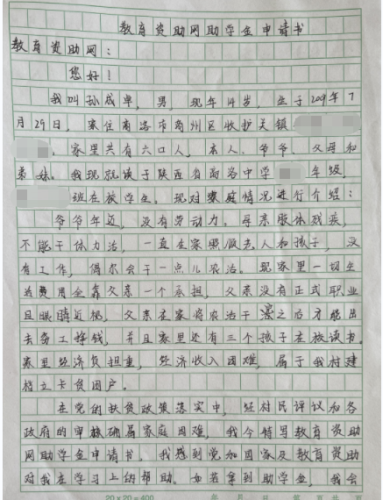 教育资助网助学金申请书
教育资助网:
您好!
我叫孙成单,男,现年14岁,生于2009年7
月29日,家住商洛市商州区牧护关镇
家里共有六口人,本人、爷爷、父母和
弟妹。我现就读于陕西省商洛中学 年级,
班在校学生。现对家庭情况进行介绍:
爷爷年迈,没有劳动力,母亲肢体残疾,
不能干体力活,一直在家照顾老人和孩子,没
有工作,偶尔会干一点儿农活。现家里一切生
活费用全靠父亲一个承担,父亲没有正式职业
且眼睛近视,父亲在家将农活干完之后才能出
去务工挣钱,并且家里还有三个孩子在校读书,
家里经济负担重,经济收入困难,属于我村建
档立卡贫困户。
在党的扶贫政策落实中,经村民评议和各
政府的审核确属家庭困难,我今特写教育资助
网助学金申请书。我感到党和国家及教育资助
对我在学习上的帮助。如若拿到助学金,我会
20×20=400